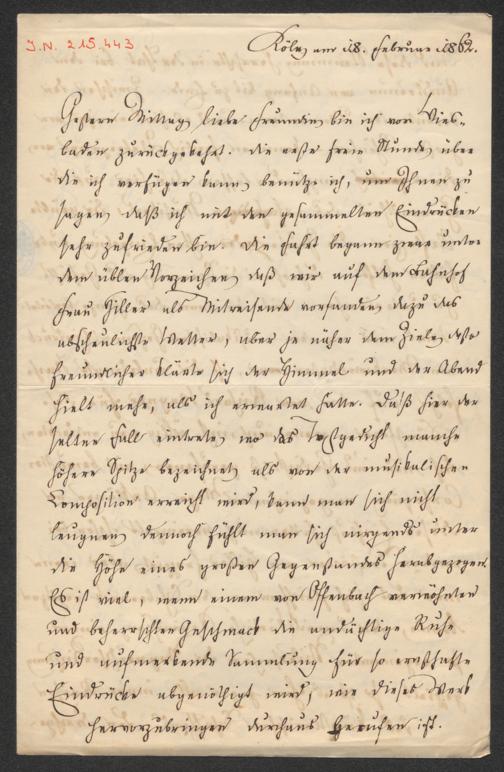 J.N. 215.443
Köln am 18. Februar 1862.
Gestern Mittag, liebe Freundin, bin ich von Wies-
baden zurückgekehrt. Die erste freie Stunde, über
die ich verfügen kann, benütze ich, um Ihnen zu
sagen, daß ich mit den gesammelten Eindrücken
sehr zufrieden bin. Die Fahrt begann zwar unter
dem üblen Vorzeichen, daß wir auf dem Bahnhof
Frau Hiller als Mitreisende vorfanden, dazu das
abscheulichste Wetter, aber je näher dem Ziele, desto
freundlicher klärte sich der Himmel und der Abend
hielt mehr, als ich erwartet hatte. Daß hier der
seltne Fall eintrete, wo das Textgedicht manche
höhere Spitze bezeichnet, als von der musikalischen
Composition erreicht wird, kann man sich nicht
leugnen, dennoch fühlt man sich nirgends unter
die Höhe eines großen Gegenstandes herabgezogen.
Es ist viel, wenn einem von Offenbach verwöhnten
und beherrschten Geschmack die andächtige Ruhe
und aufmerkende Sammlung für so ernsthafte
Eindrücke abgenöthigt wird, wie dieses Werk
hervorzubringen durchaus berufen ist.